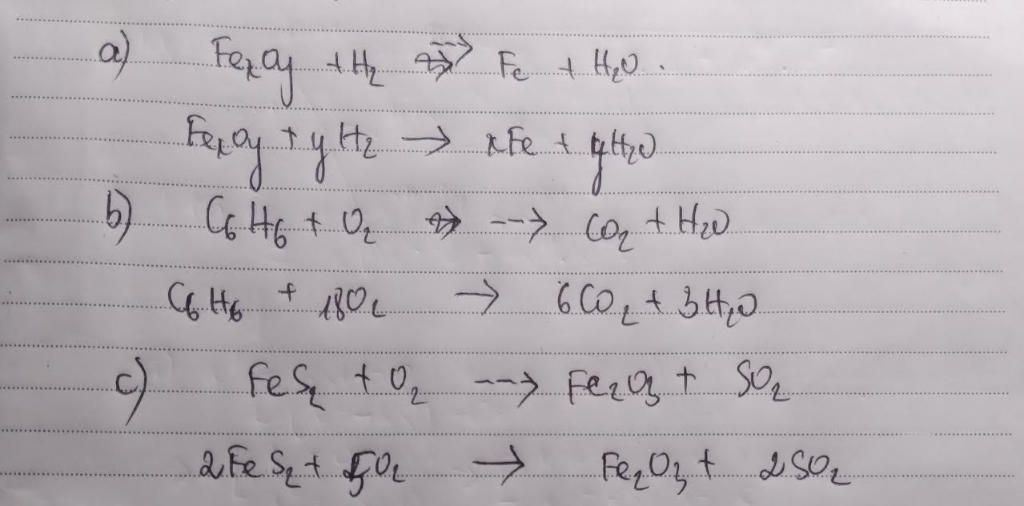 a) FexOy + H2 --> Fe + H2O.
FexOy + yH2 → xFe + yH2O
b) C6H6 + O2 --> CO2 + H2O
C6H6 + 18O2 → 6CO2 + 3H2O
c) FeS2 + O2 --> Fe2O3 + SO2
2FeS2 + 5O2 → Fe2O3 + 2SO2